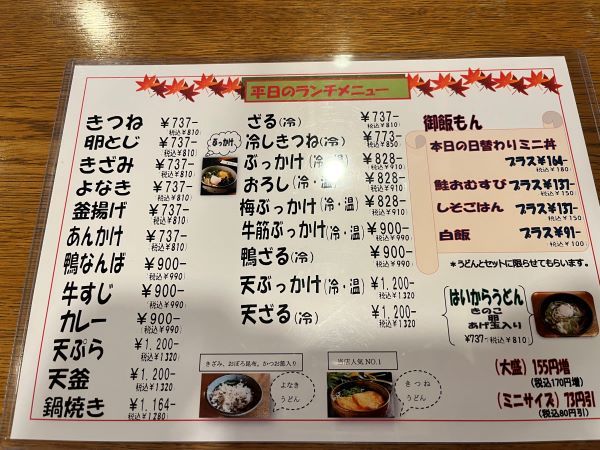 平日のランチメニュー
きつね ￥737-
税込￥810
卵とじ ￥737-
税込￥810
きざみ ￥737-
税込￥810
よなき ￥737-
税込￥810
釜揚げ ￥737-
税込￥810
あんかけ ￥737-
税込￥810
鴨なんば ￥900-
税込￥990
牛すじ ￥900-
税込￥990
カレー ￥900-
(税込￥990)
天ぷら ￥1.200-
税込￥1320
天釜 ￥1.200-
税込￥1320
鍋焼き ￥1.164-
税込￥1280
ぶっかけ
ざる(冷) ￥737-
税込￥810
冷しきつね(冷) ￥773-
税込￥850
ぶっかけ(冷・温) ￥828-
税込￥910
おろし(冷・温) ￥828-
税込￥910
梅ぶっかけ(冷・温) ￥828-
税込￥910
牛筋ぶっかけ(冷・温) ￥900-
税込￥990
鴨ざる(冷) ￥900-
税込￥990
天ぶっかけ(冷・温) ￥1.200-
税込￥1320
天ざる(冷) ￥1.200-
税込￥1320
きざみ、おぼろ昆布、かつお節入り
よなき
うどん
当店人気NO.1
きつね
うどん
御飯もん
本日の日替わりミニ丼
プラス￥164-
税込￥180
鮭おむすび プラス￥137-
税込￥150
しそごはん プラス￥137-
税込￥150
白飯 プラス￥91-
税込￥100
＊うどんとセットに限らせてもらいます。
はいからうどん
きのこ
卵
あげ玉入り
￥737- 税込￥810
(大盛) 155円増
(税込170円増)
(ミニサイズ) 73円引
(税込80円引)